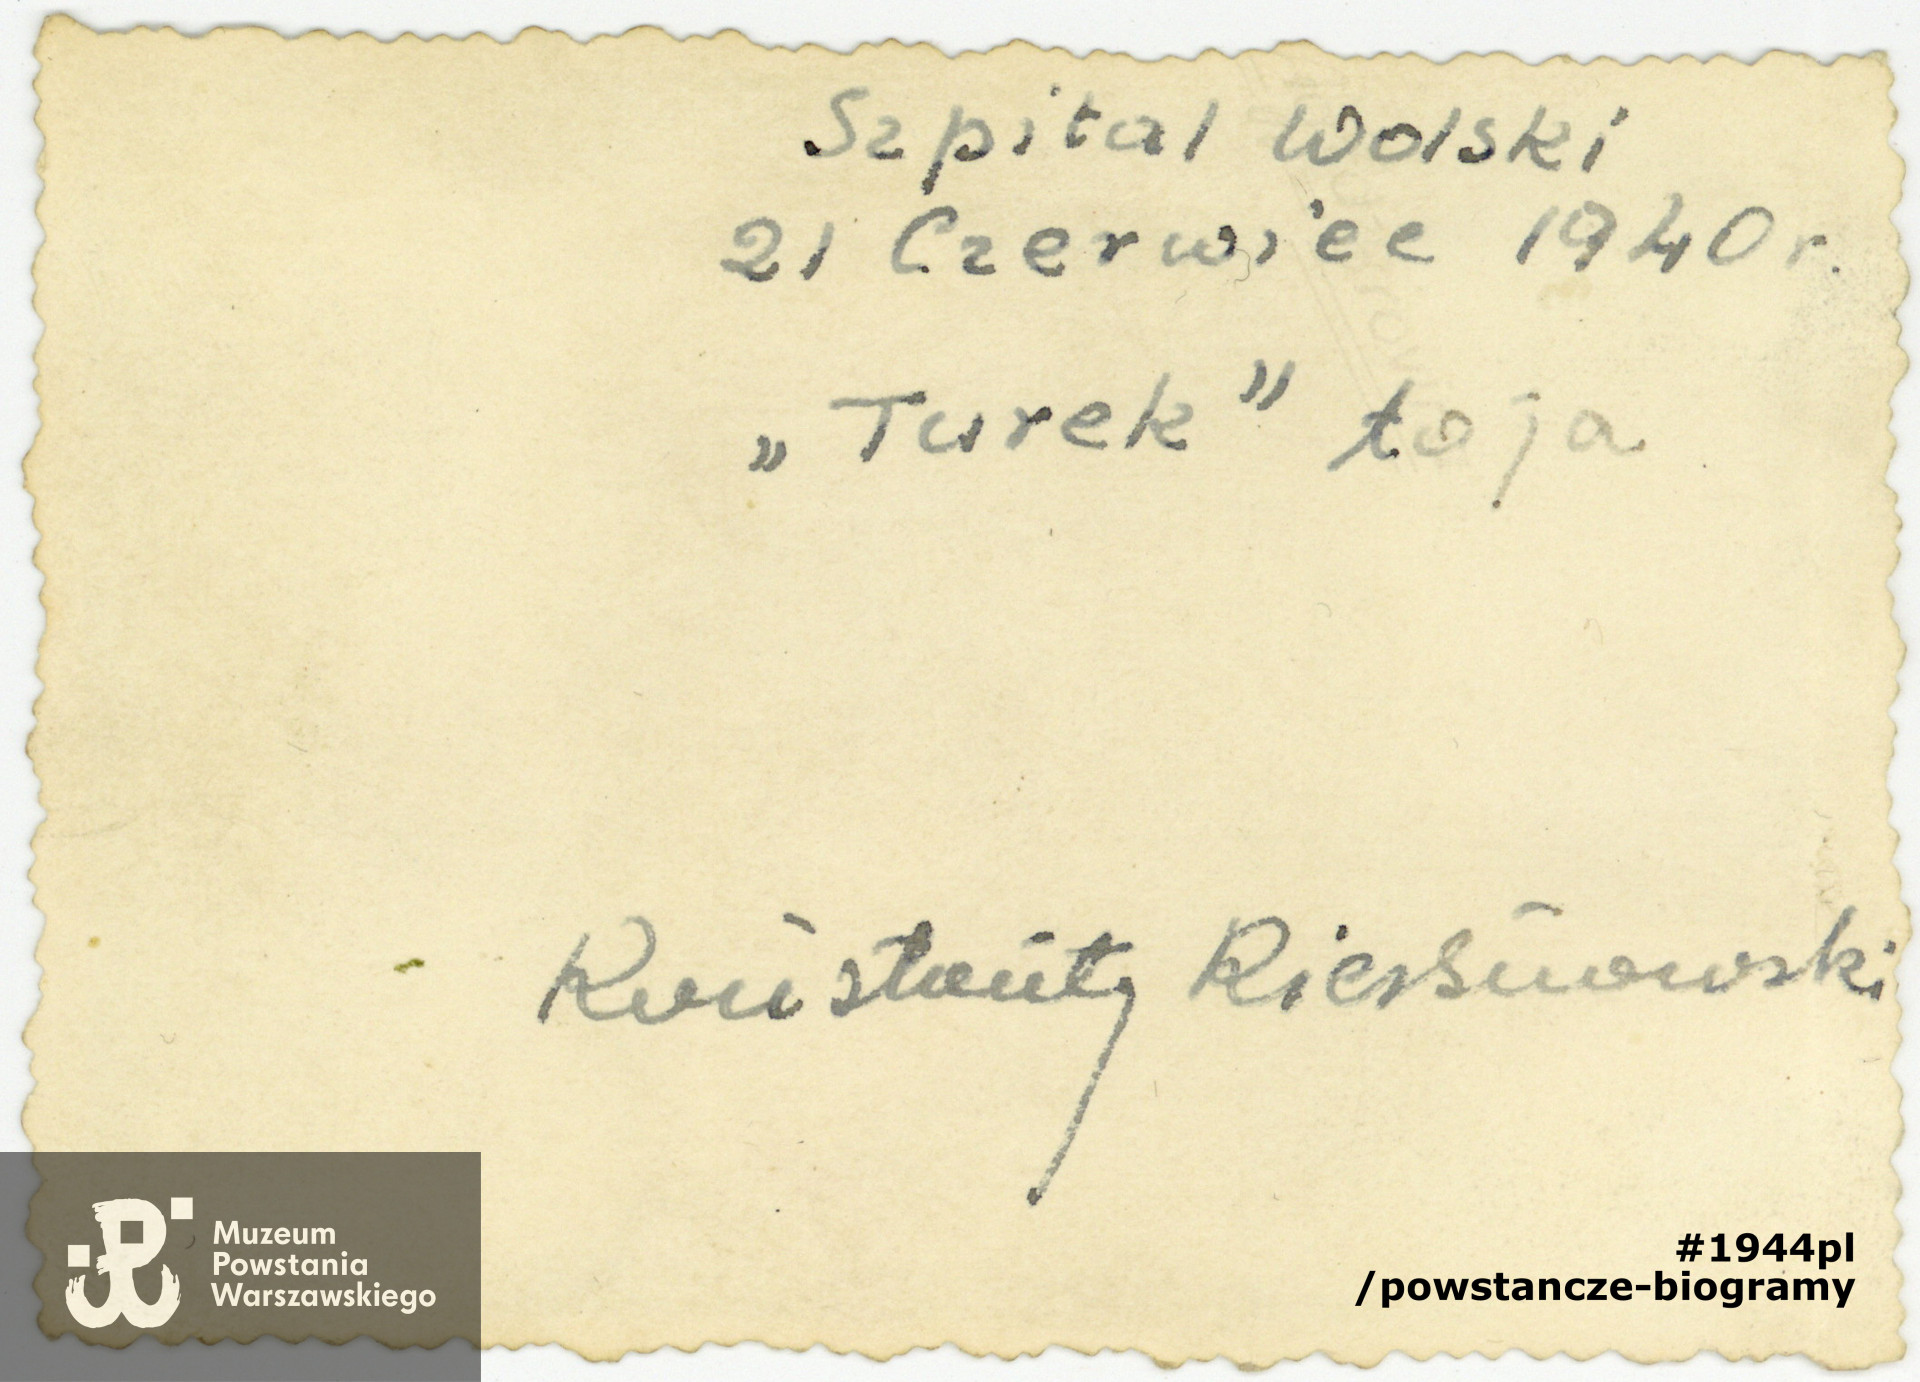 Szpital Wolski
21 Czerwiec 1940 r.
„Turek” to ja
Konstanty Kierśnowski
Muzeum
Powstania
Warszawskiego
#1944pl
/powstancze-biogramy